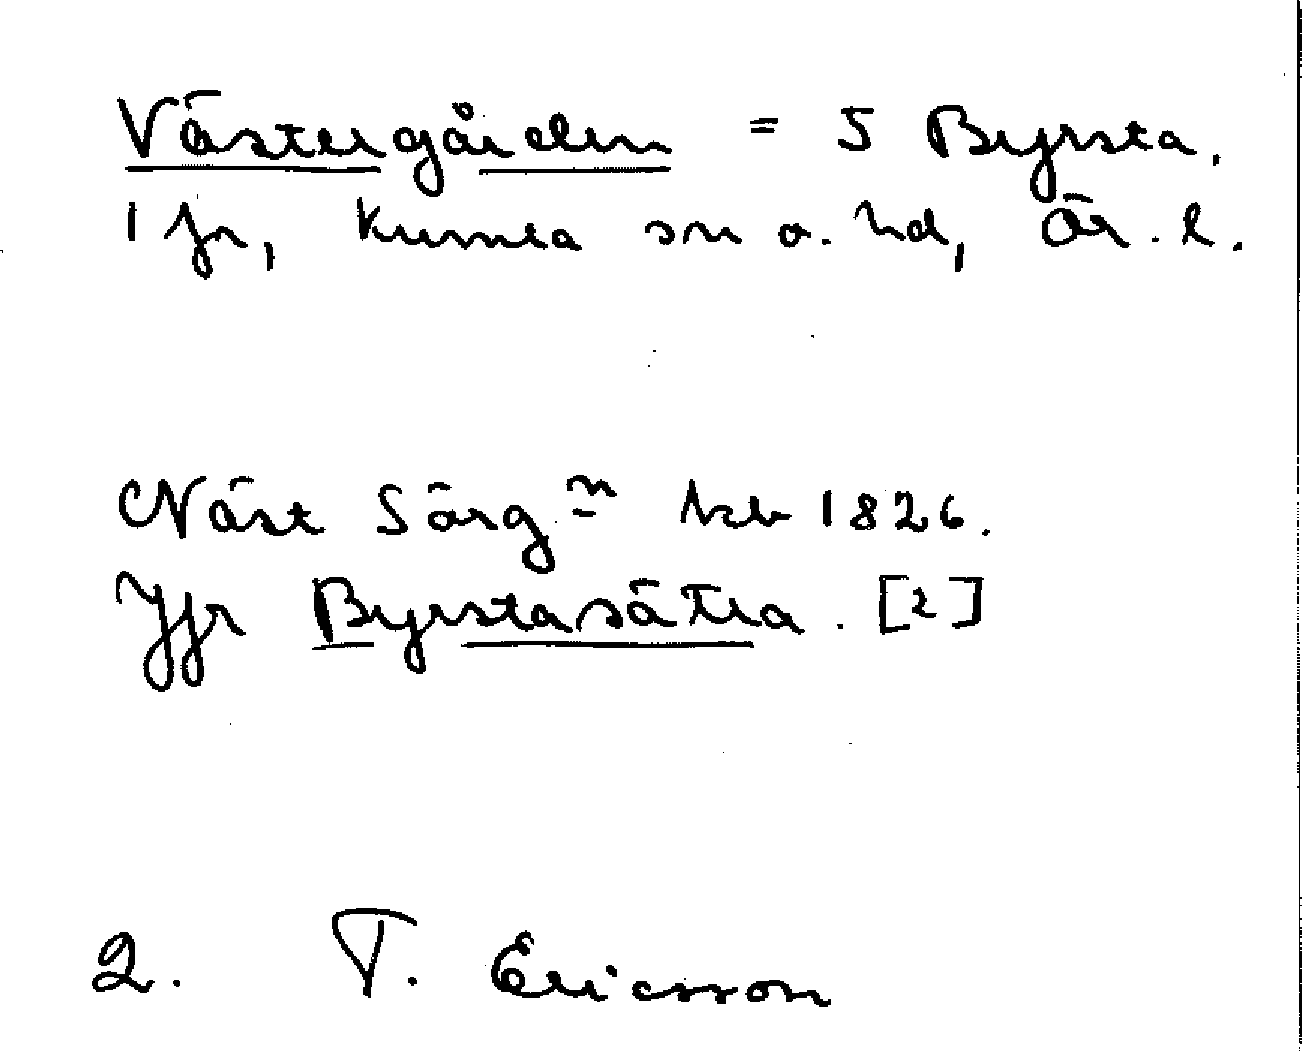 Västergården = S Byrsta.
1 fr, Kumla sn o. hd, Ör. l.
Näst Sörg<sup>n</sup> hkl 1826.
Jfr Byrstasätra. [2]
2. T. Ericsson